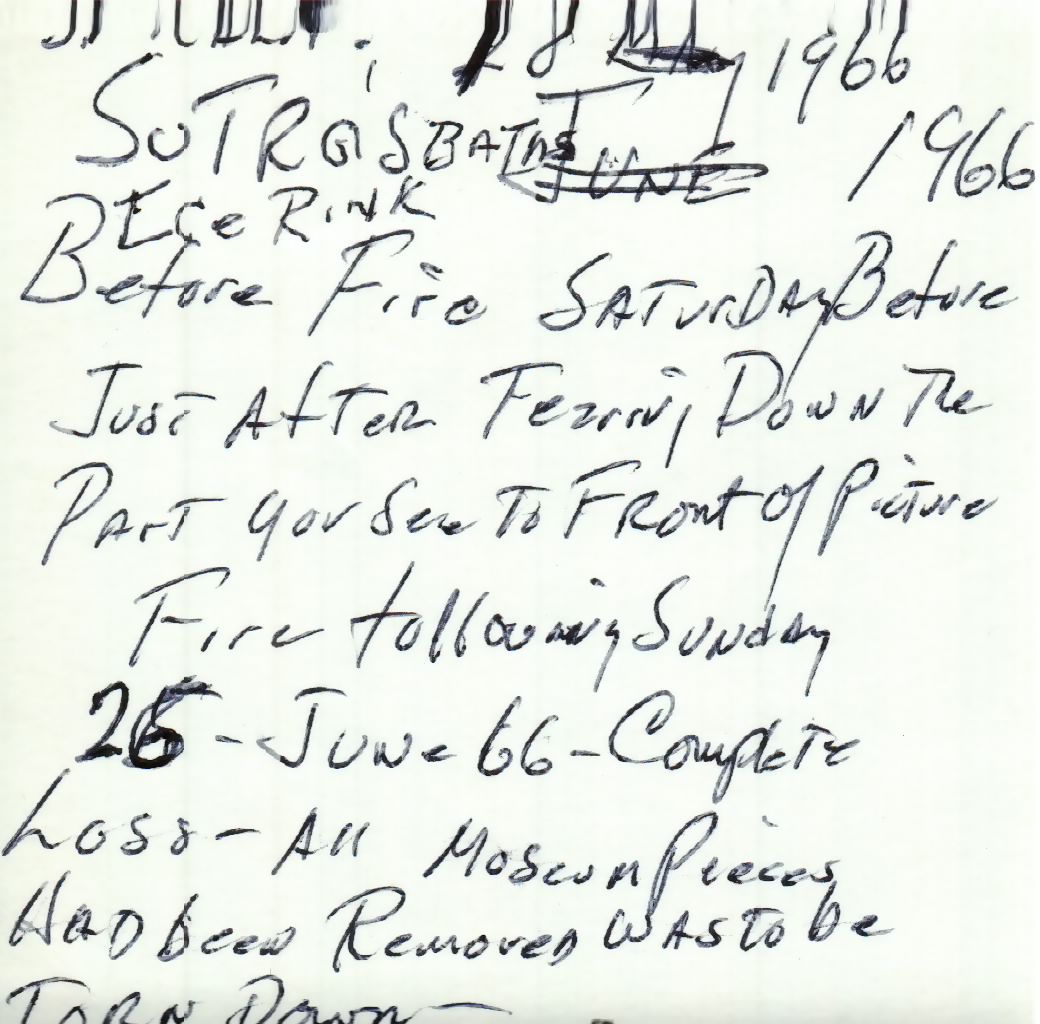 28 May 1966
SUTRO'S BATHS JUNE 1966
ICe RINK
Before Fire SATurDAy Before
JusT AfTer Tearing Down The
PArT you See To FRont Of Picture
Fire following Sunday
26 - June 66 - Complete
Loss - All Moseum Pieces
HAD been Removed WAS To be
TORN Down